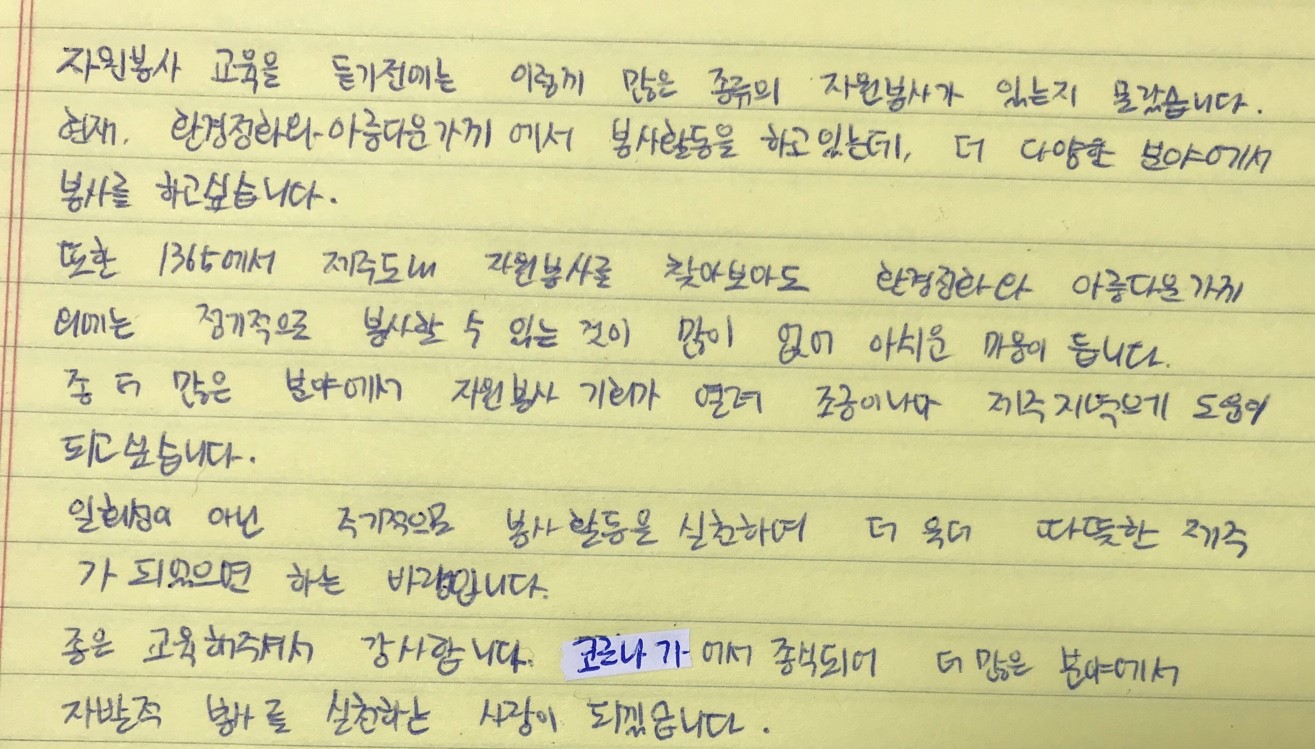 자원봉사 교육을 듣기전에는 이렇게 많은 종류의 자원봉사가 있는지 몰랐습니다.
현재, 환경정화와 아름다운가게에서 봉사활동을 하고있는데, 더 다양한 분야에서
봉사를 하고싶습니다.
또한 1365에서 제주도내 자원봉사를 찾아보아도 환경정화와 아름다운가게
외에는 정기적으로 봉사할 수 있는 것이 많이 없어 아쉬운 마음이 듭니다.
좀 더 많은 분야에서 자원봉사 기회가 열려 조금이나마 제주지역에 도움이
되고싶습니다.
일회성이 아닌 주기적으로 봉사활동을 실천하며 더욱더 따뜻한 제주
가 되었으면 하는 바램입니다.
좋은 교육해주셔서 감사합니다. 코로나가 에서 종식되어 더 많은 분야에서
자발적 봉사를 실천하는 사람이 되겠습니다.